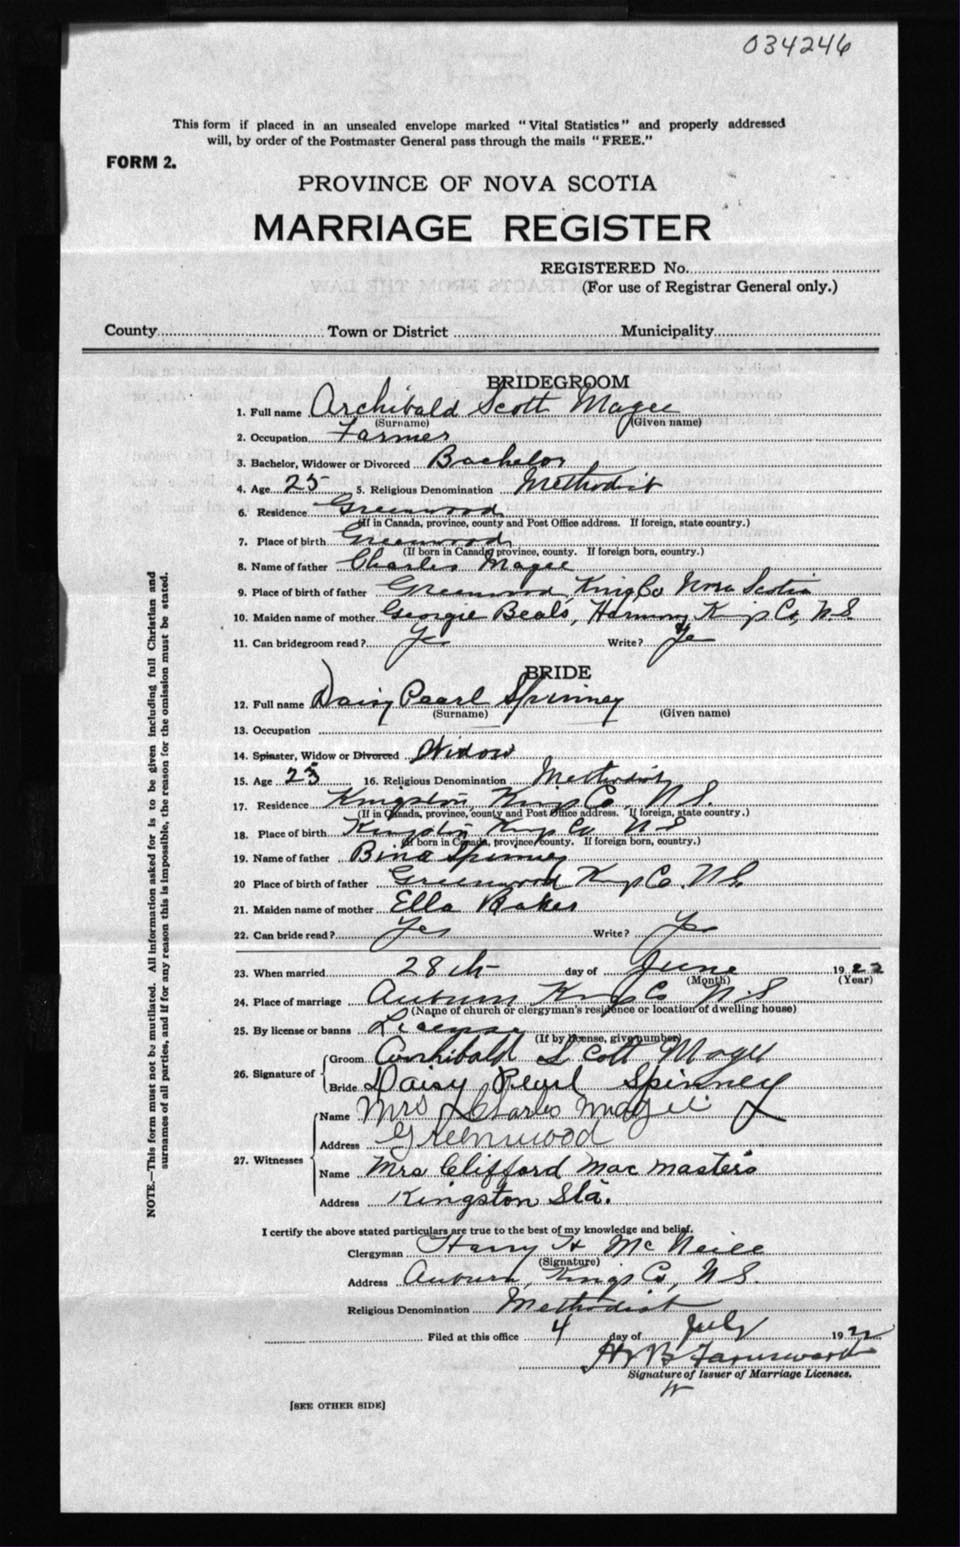 034246
This form if placed in an unsealed envelope marked "Vital Statistics" and properly addressed
will, by order of the Postmaster General pass through the mails "FREE."
FORM 2.
PROVINCE OF NOVA SCOTIA
MARRIAGE REGISTER
REGISTERED No.
(For use of Registrar General only.)
County Town or District Municipality
BRIDEGROOM
1. Full name Archibald Scott Magee
(Surname) (Given name)
2. Occupation Farmer
3. Bachelor, Widower or Divorced Bachelor
4. Age 23 5. Religious Denomination Methodist
6. Residence Greenwood
(If in Canada, province, county and Post Office address. If foreign, state country.)
7. Place of birth Greenwood
(If born in Canada, province, county. If foreign born, country.)
8. Name of father Charles Magee
9. Place of birth of father Greenwood, Kings Co Nova Scotia
10. Maiden name of mother Georgie Beals, Harmony Kings Co, N.S.
11. Can bridegroom read? Yes Write? Yes
BRIDE
12. Full name Daisy Pearl Spinney
(Surname) (Given name)
13. Occupation
14. Spinster, Widow or Divorced Widow
15. Age 23 16. Religious Denomination Methodist
17. Residence Kingston, Kings Co, N.S.
(If in Canada, province, county and Post Office address. If foreign, state country.)
18. Place of birth Kingston Kings Co N S
(If born in Canada, province, county. If foreign born, country.)
19. Name of father Spinney
20 Place of birth of father Greenwood Kings Co. N.S.
21. Maiden name of mother Ella Baker
22. Can bride read? Yes Write? Yes
23. When married 28th day of June 1922
(Month) (Year)
24. Place of marriage Auburn Kings Co N S
(Name of church or clergyman's residence or location of dwelling house)
25. By license or banns License
(If by license, give number)
26. Signature of Groom Archibald Scott Magee
Bride Daisy Pearl Spinney
27. Witnesses
Name Mrs Charles Magee
Address Greenwood
Name Mrs Clifford MacMasters
Address Kingston Sta.
I certify the above stated particulars are true to the best of my knowledge and belief.
Clergyman Harry H McNeill
(Signature)
Address Auburn, Kings Co, N.S.
Religious Denomination Methodist
Filed at this office 4 day of July 1922
Farnsworth
Signature of Issuer of Marriage Licenses.
[SEE OTHER SIDE]
NOTE.—This form must not be mutilated. All information asked for is to be given including full Christian and
surnames of all parties, and if for any reason this is impossible, the reason for the omission must be stated.